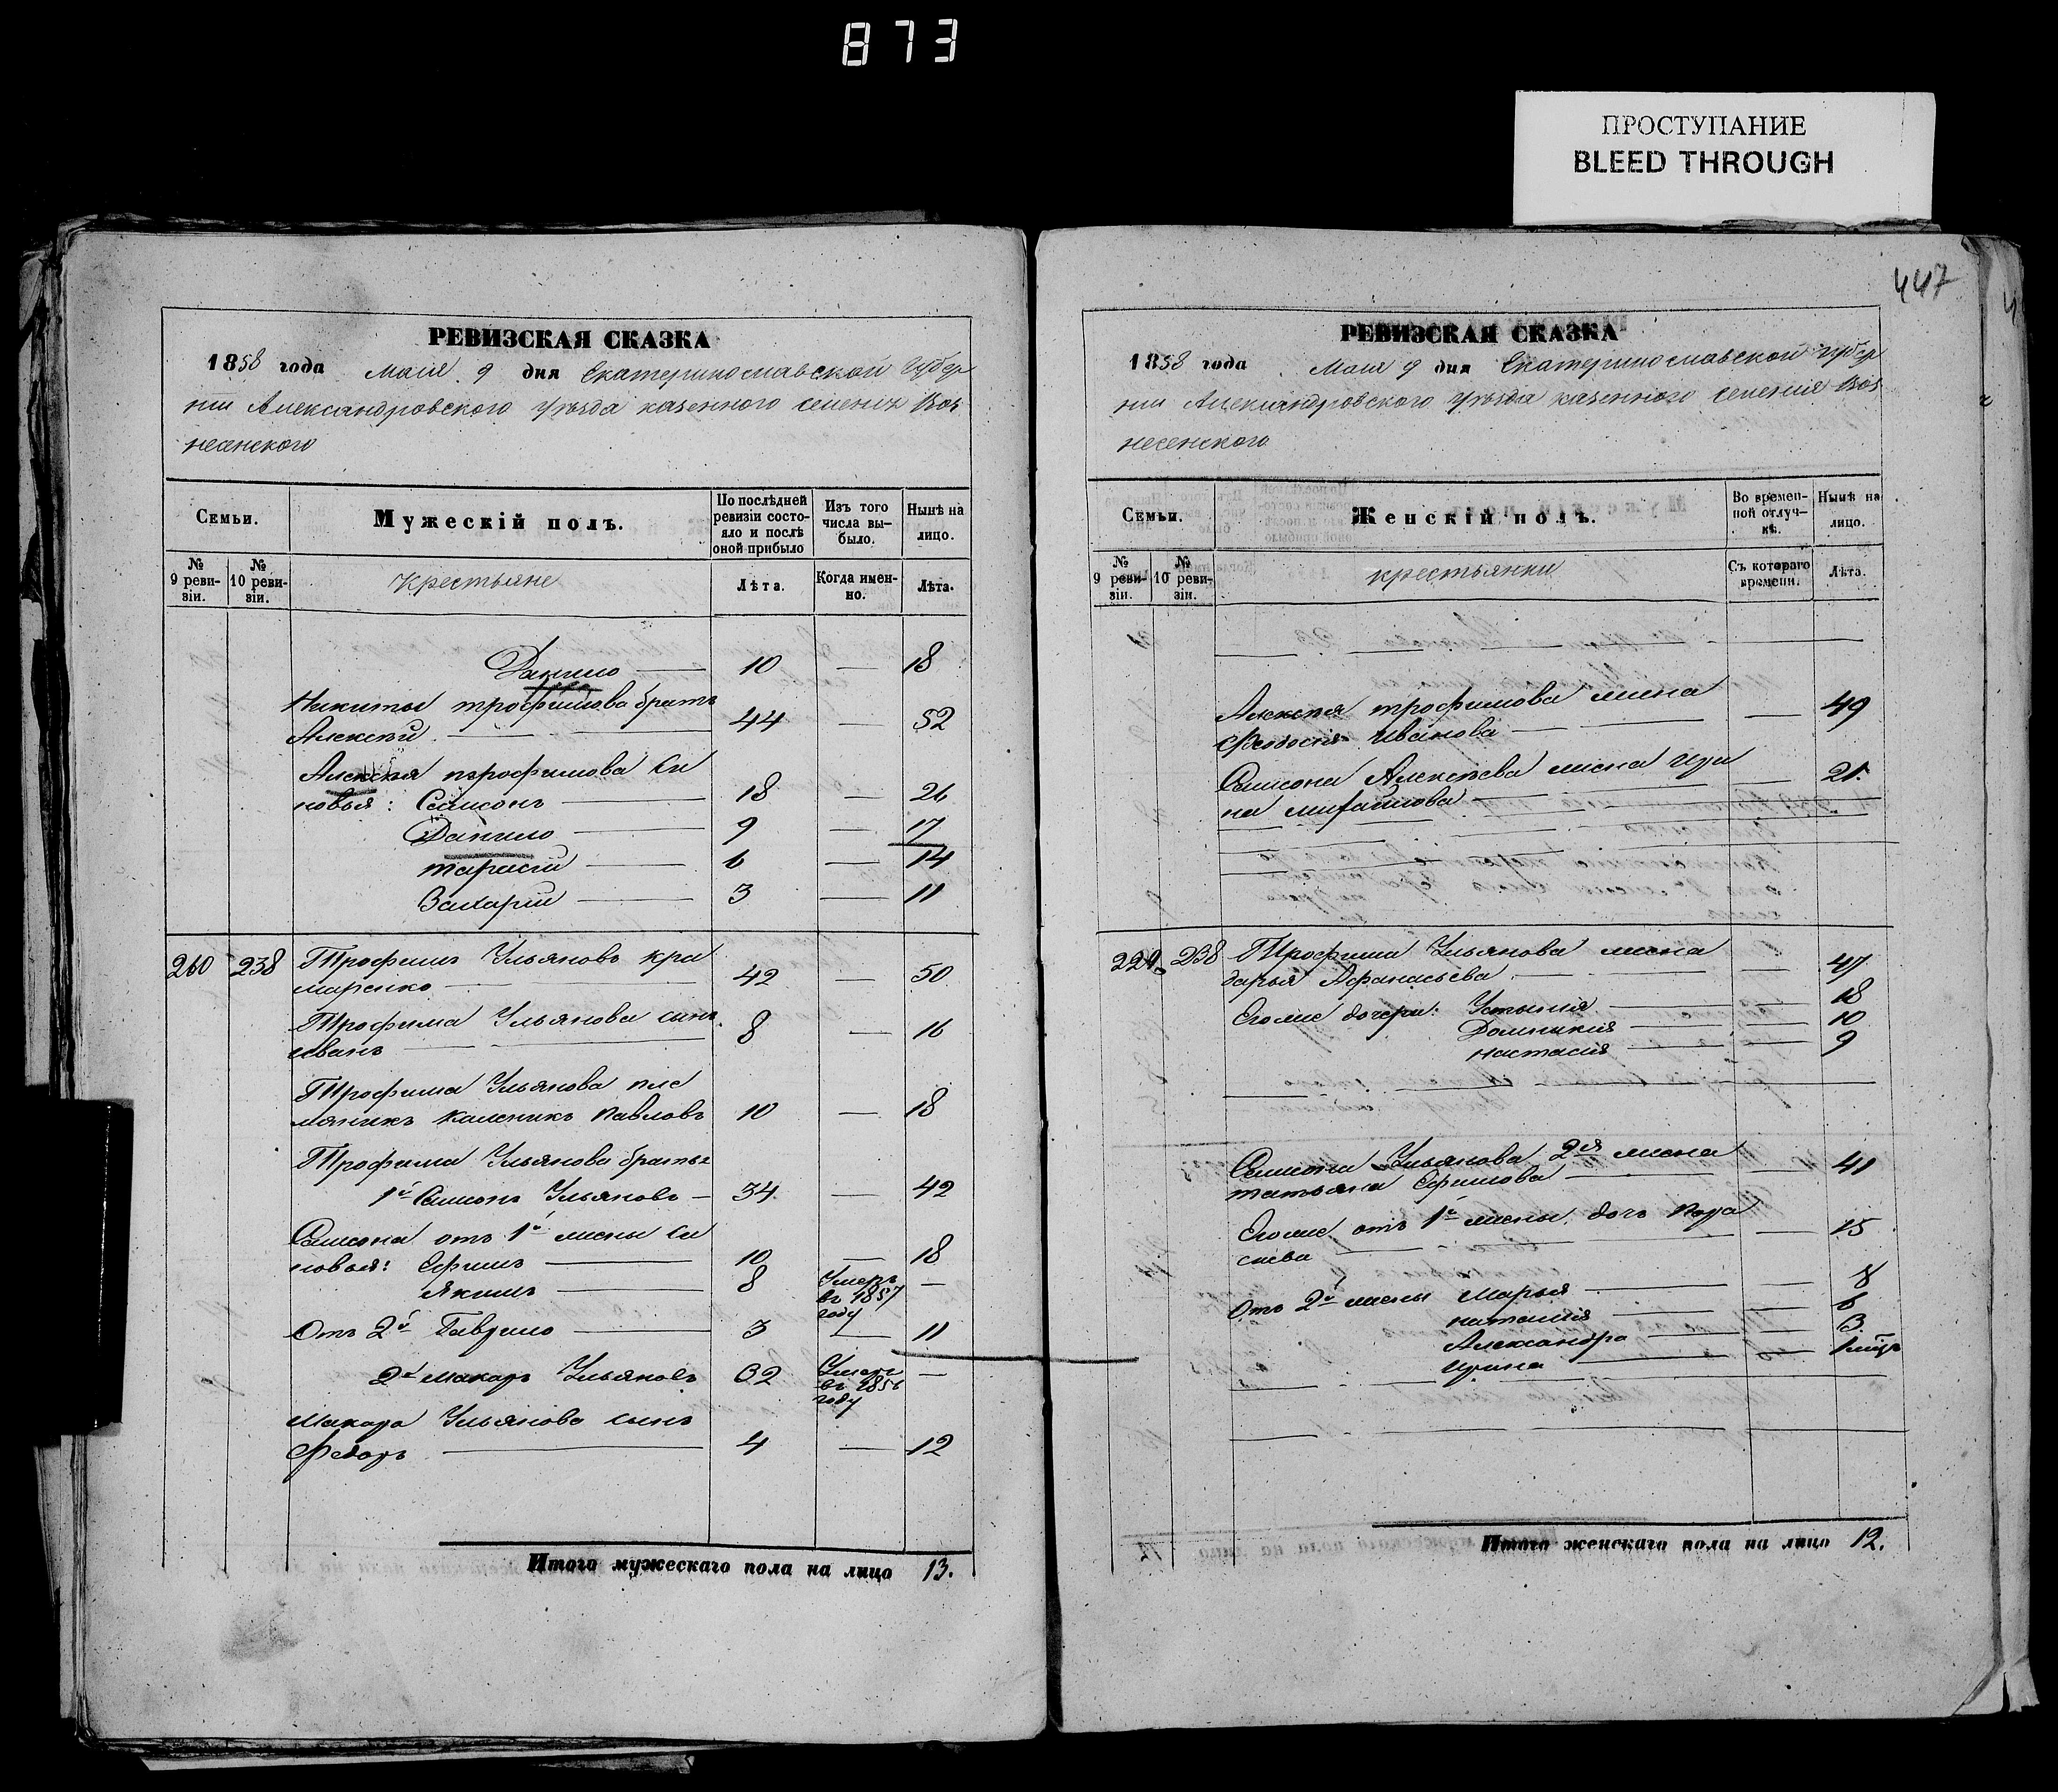 873
ПРОСТУПАНИЕ
BLEED THROUGH
447
РЕВИЗСКАЯ СКАЗКА
1858 года Мая 9 дня Екатеринославской Губер
нии Александровского Уѣзда казенного селения Воз
несенского
Семьи.
Мужескій полъ.
По послѣдней ревизіи состо-
яло и послѣ
оной прибыло
Изъ того
числа вы-
было.
Нынѣ на
лицо.
№ 9 реви-
зіи.
№ 10 реви-
зіи.
Крестьяне
Лѣта.
Когда имен-
но.
Лѣта.
Данило — 10 — 18
Никиты трофимова братъ
Алексѣй — 44 — 52
Алексея трофимова си
новья: Самсонъ — 18 — 26
Данило — 9 — 17
тарасий — 6 — 14
Захарий — 3 — 11
260 238 Трофимъ Ульяновъ кра
маренко — 42 — 50
Трофима Ульянова сынъ
иванъ — 8 — 16
Трофима Ульянова пле
мяникъ Каленикъ Павловъ 10 — 18
Трофима Ульянова братья
1й Самсонъ Ульяновъ — 34 — 42
Самсона отъ 1й жены си
новья: Ефимъ — 10 — 18
Якимъ — 8 Умеръ
въ 1857
году —
Отъ 2й Гаврило — 3 — 11
2й макаръ Ульяновъ 32 Умеръ
въ 1856
году —
Макара Ульянова сынъ
Федоръ — 4 — 12
Итого мужескаго пола на лицо 13.
РЕВИЗСКАЯ СКАЗКА
1858 года Мая 9 дня Екатеринославской Губер
нии Александровского Уѣзда казенного селения Воз
несенского
Семьи.
Женскій полъ.
Во времен-
ной отлуч-
кѣ.
Нынѣ на
лицо.
№ 9 реви-
зіи.
№ 10 реви-
зіи.
крестьянки
Съ котораго
времени.
Лѣта.
Алексея трофимова жена
Феодосия Иванова — 49
Самсона Алексѣева жена Ири
на михайлова — 21
238 Трофима Ульянова жена
дарья Афанасьева — 47
Егоже дочери: Устыния — 18
Домникия — 10
настасия — 9
Самсона Ульянова 2я жена
татьяна Ефимова — 41
Егоже отъ 1й жены дочь Пара
скева — 15
Отъ 2й жены Марья — 8
наталия — 6
Александра — 3
Ирина — 1
Итого женскаго пола на лицо 12.